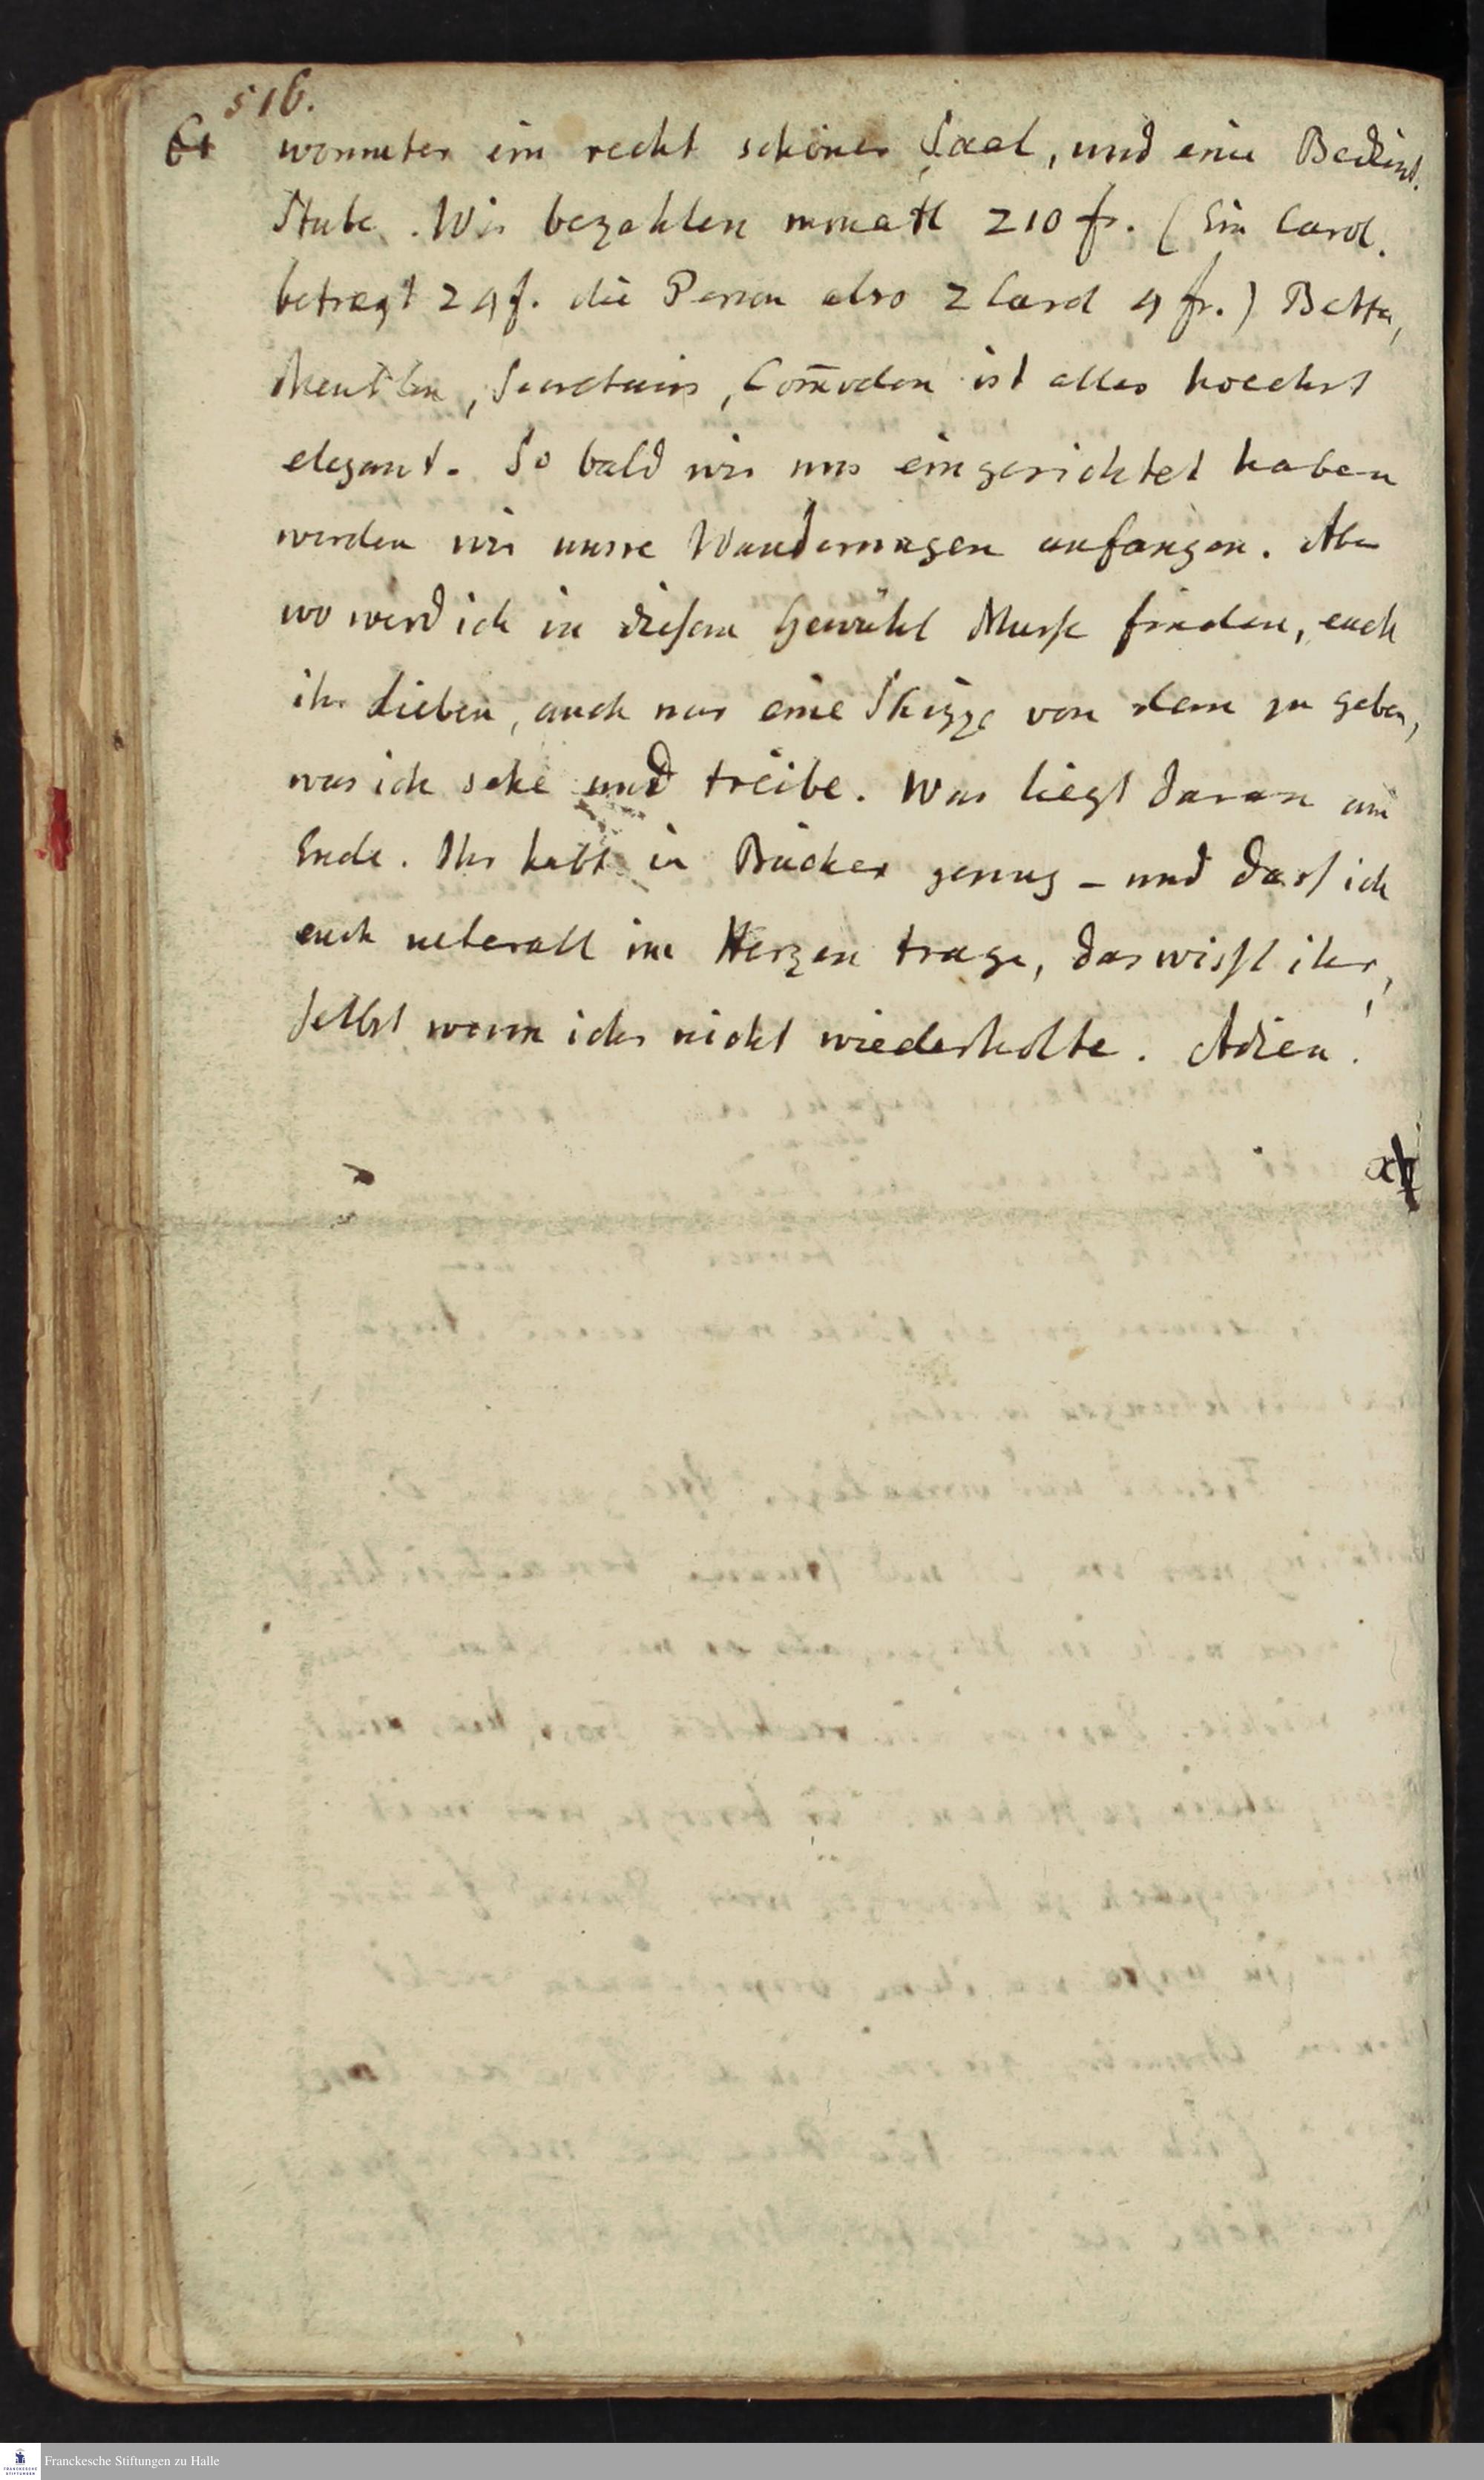 516.
61 worunter ein recht schöner Saal, und eine Bedient.
Stube. Wir bezahlen monatl 210 fr. (Ein Carol.
betragt 24 f. die Person also 2 Carol 4 fr.) Betten,
Meublen, Secretairs, Com̄oden ist alles hoechst
elegant. So bald wir uns eingerichtet haben
werden wir unsre Wanderungen anfangen. Aber
wo werd ich in diesem Gewühl Musse finden, euch
ihr Lieben, auch nur eine Skizze von dem zu geben,
was ich sehe und treibe. Was liegt daran am
Ende. Ihr habt ia Bücher genug – und dass ich
euch ueberall im Herzen trage, das wisst ihr,
selbst wenn ichs nicht wiederholte. Adieu!
Franckesche Stiftungen zu Halle